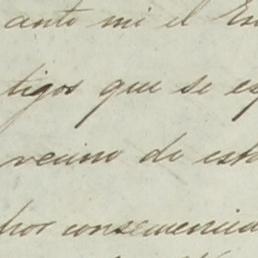 ante mi el En
tigos que se es
vecino de esta
hos consecuencia